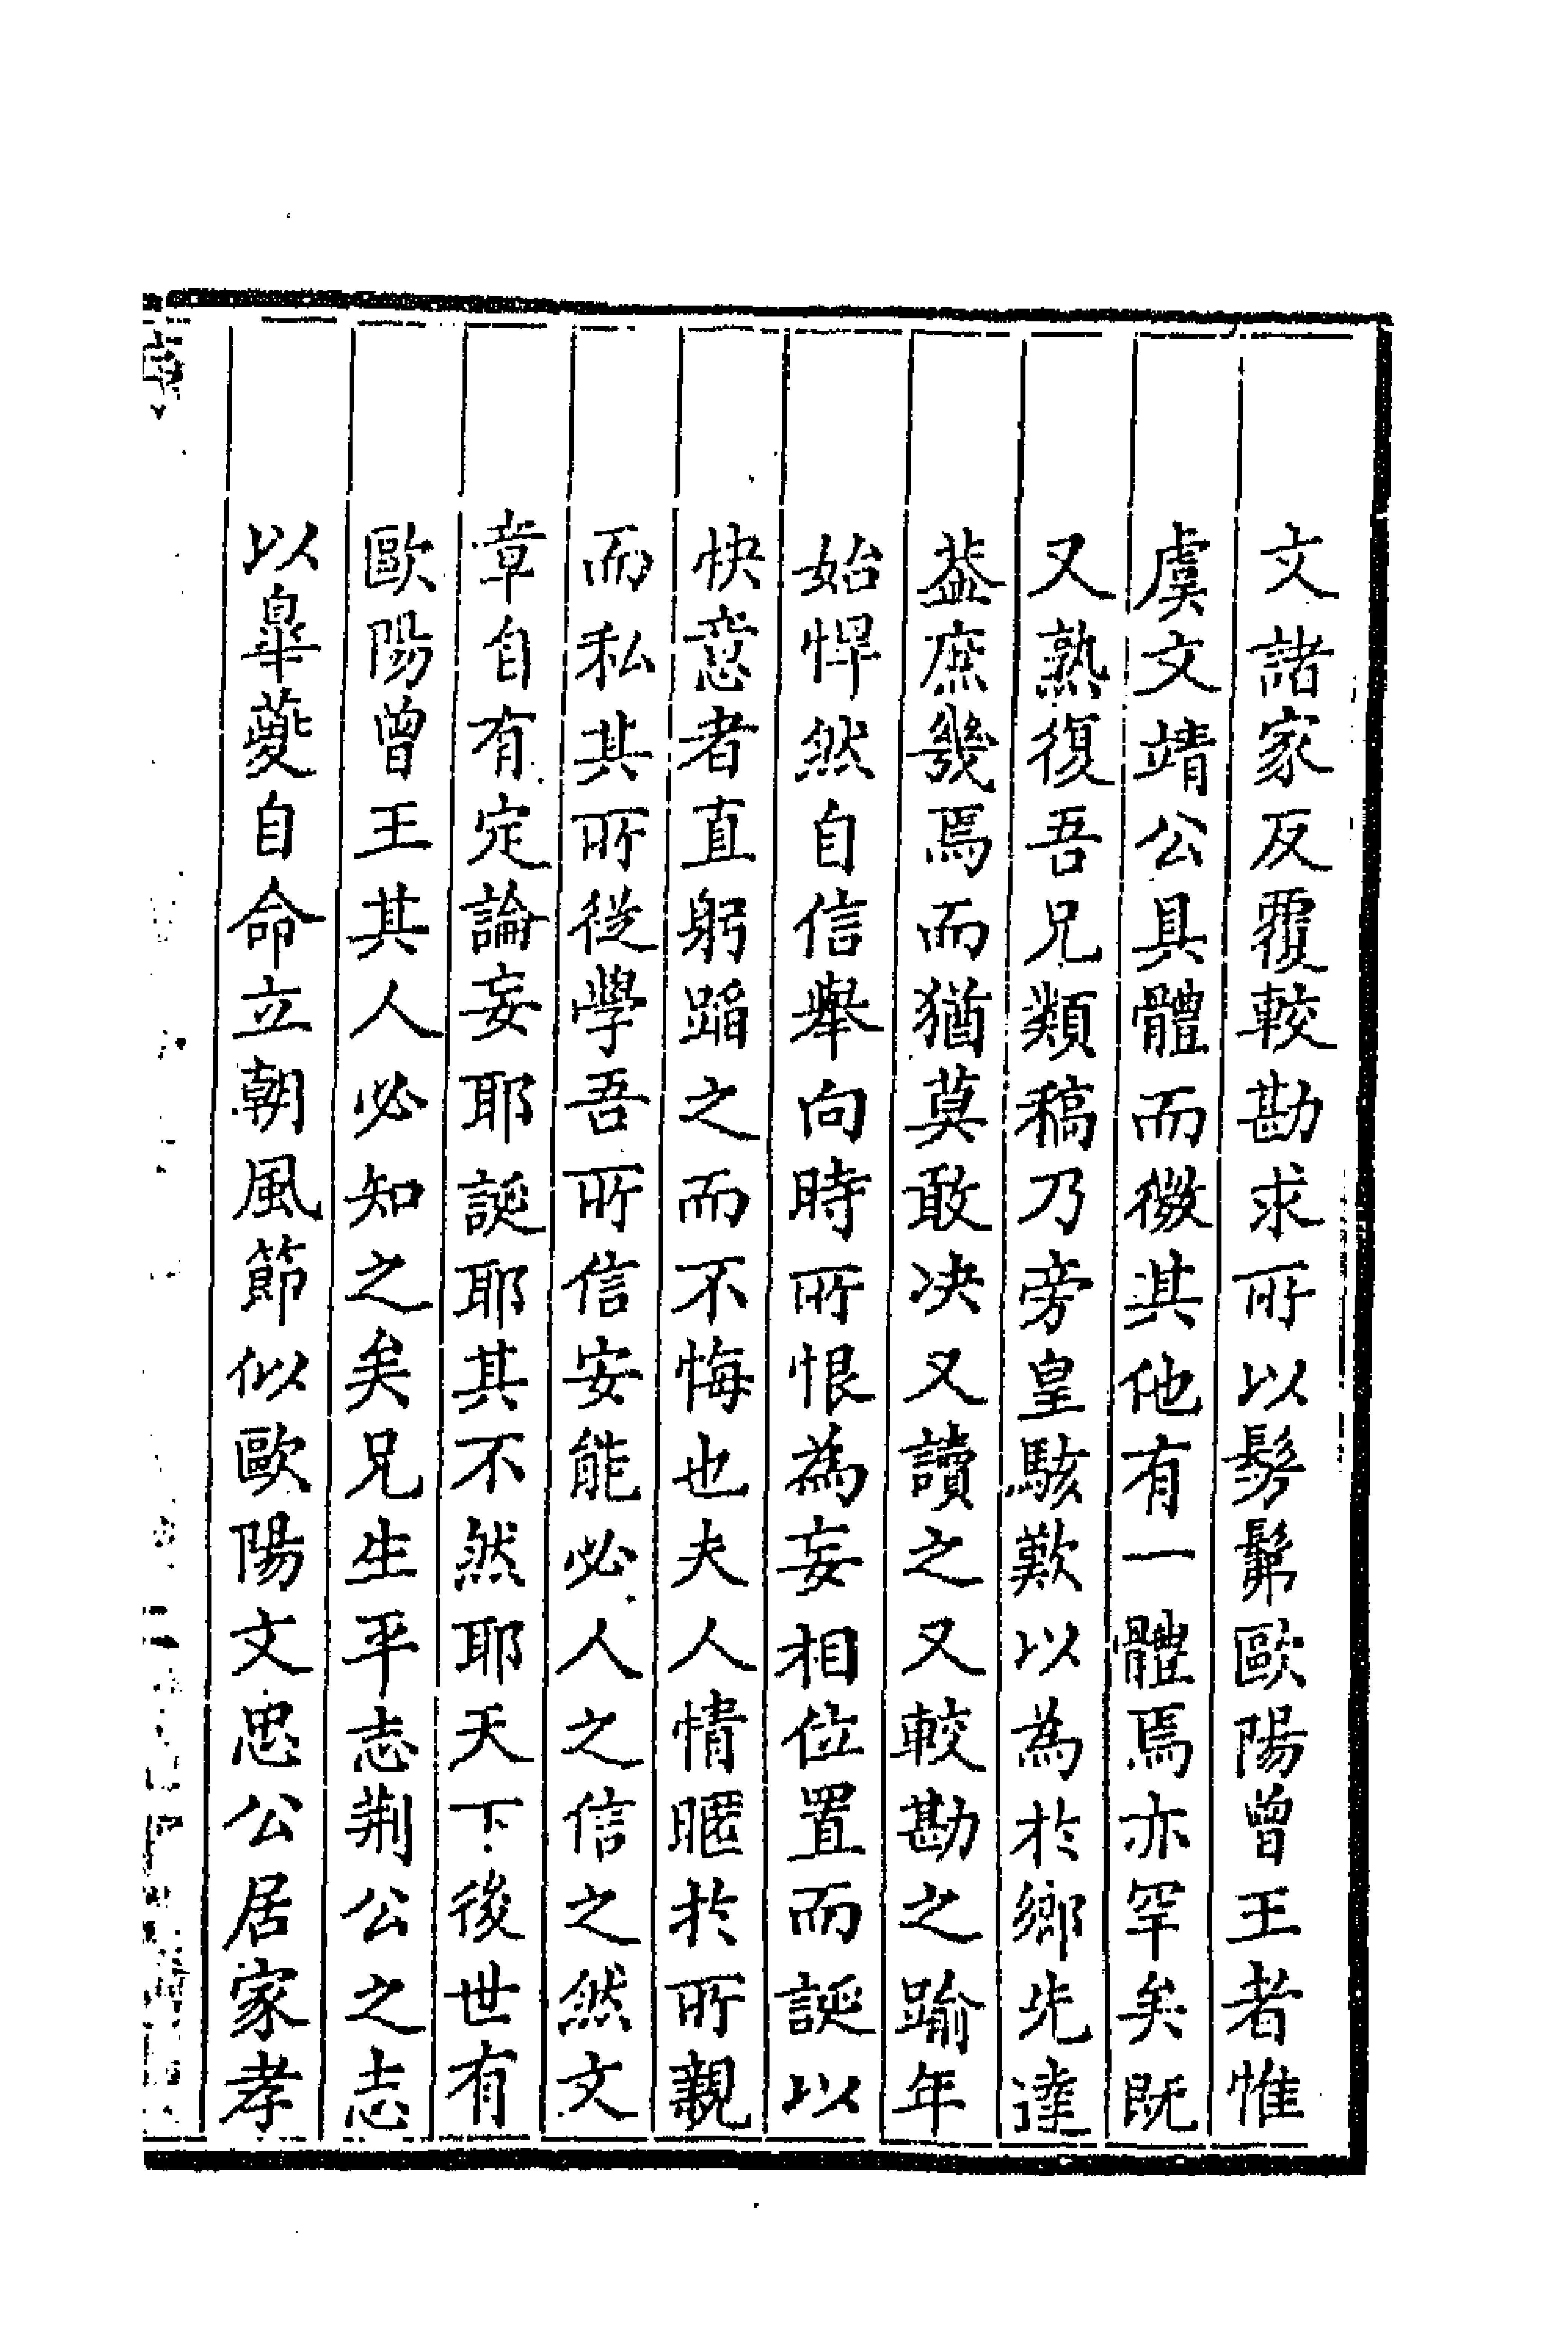 文諸家反覆較勘求所以髣髴歐陽曾王者惟
虞文靖公具體而微其他有一體焉亦罕矣既
又熟復吾兄類稿乃旁皇駭歎以為於鄉先達
葢庶幾焉而猶莫敢決又讀之又較勘之踰年
始悍然自信舉向時所恨為妄相位置而誕以
快意者直躬蹈之而不悔也夫人情暱於所親
而私其所從學吾所信安能必人之信之然文
章自有定論妄耶誕耶其不然耶天下後世有
歐陽曾王其人必知之矣兄生平志荆公之志
以臯夔自命立朝風節似歐陽文忠公居家孝